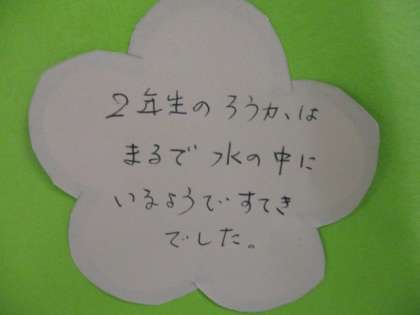 2年生のろうかは
まるで水の中に
いるようですてき
でした。